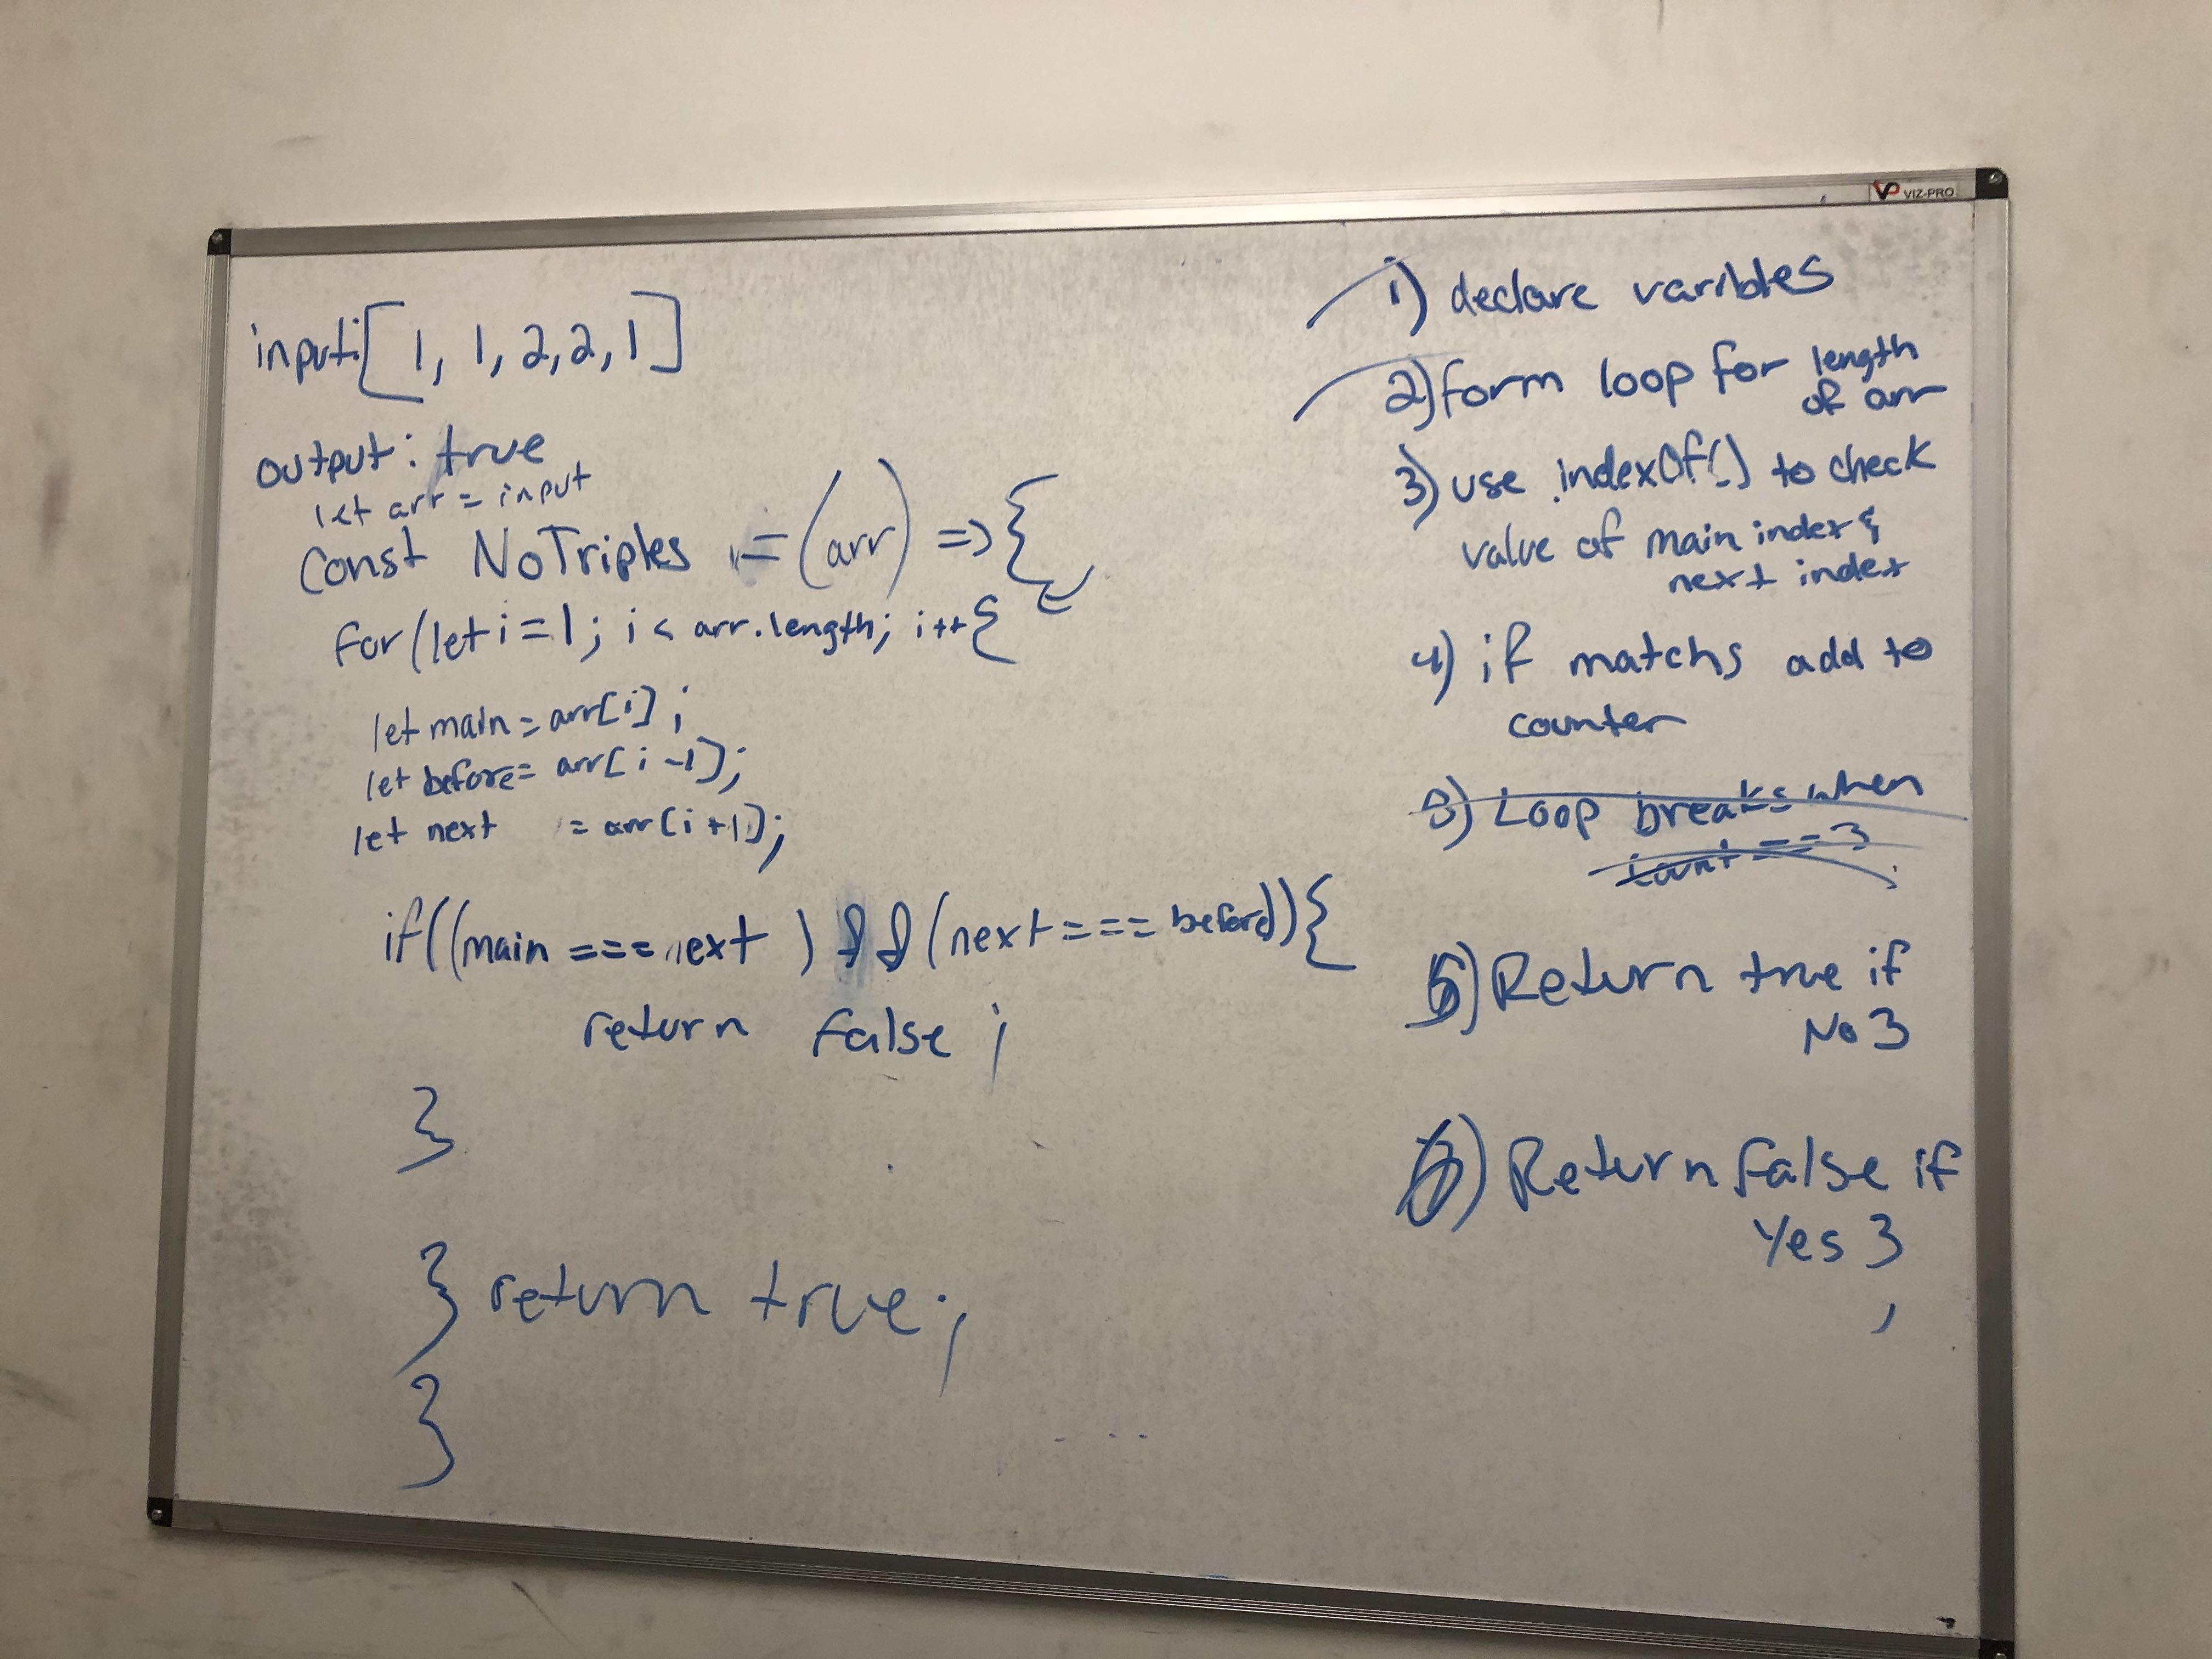 VIZ-PRO
input:[1, 1, 2, 2, 1]
output: true
let arr = input
Const NoTriples = (arr) => {
for(let i = 1; i < arr.length; i++{
let main = arr[i];
let before = arr[i-1];
let next = arr[i+1];
if((main === next) && (next === before)){
return false;
}
} return true;
}
1) declare varibles
2) form loop for length
of arr
3) use .indexOf() to check
value of main index &
next index
4) if matchs add to
counter
5) Loop breaks when
count === 3
5) Return true if
No 3
6) Return false if
Yes 3